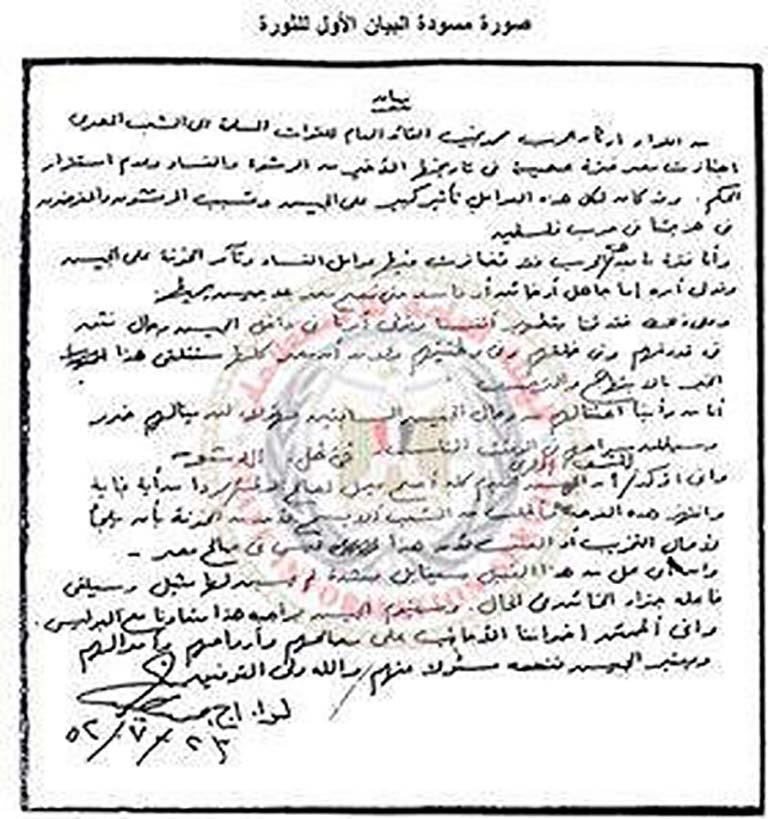 صورة مسودة البيان الأول للثورة
بيان
من اللواء أركان حرب محمد نجيب القائد العام للقوات المسلحة إلى الشعب المصرى
اجتازت مصر فترة عصيبة فى تاريخها الأخير من الرشوة والفساد وعدم استقرار
الحكم. وقد كان لكل هذه العوامل تأثير كبير على الجيش وتسبب المرتشون والمغرضون
فى هزيمتنا فى حرب فلسطين
وأما فترة ما بعد هذه الحرب فقد تضافرت فيها عوامل الفساد وتآمر الخونة على الجيش
وتولى أمره إما جاهل أو خائن أو فاسد حتى تصبح مصر بلا جيش يحميها.
وعلى ذلك فقد قمنا بتطهير أنفسنا وتولى أمرنا فى داخل الجيش رجال نثق
فى قدرتهم وفى خلقهم وفى وطنيتهم ولابد أن مصر كلها ستتلقى هذا
الخبر بالابتهاج والترحيب
أما من رأينا اعتقالهم من رجال الجيش السابقين فهؤلاء لن ينالهم ضرر
وسيطلق سراحهم فى الوقت المناسب
وانى أؤكد للشعب المصرى أن الجيش اليوم كله أصبح يعمل لصالح الوطن فى ظل الدستور مجردا من أية غاية
وانتهز هذه الفرصة فأطلب من الشعب ألا يسمح لأحد من الخونة بأن يلجأ
لأعمال التخريب أو العنف لأن هذا ليس فى صالح مصر -
وان أى عمل من هذا القبيل سيقابل بشدة لم يسبق لها مثيل وسيلقى
فاعله جزاء الخائن فى الحال. وسيقوم الجيش بواجبه هذا متعاونا مع البوليس.
وانى أطمئن إخواننا الأجانب على مصالحهم وأرواحهم وأموالهم
ويعتبر الجيش نفسه مسئولا عنهم والله ولى التوفيق
لواء أ.ح
٢٣/٧/٥٢